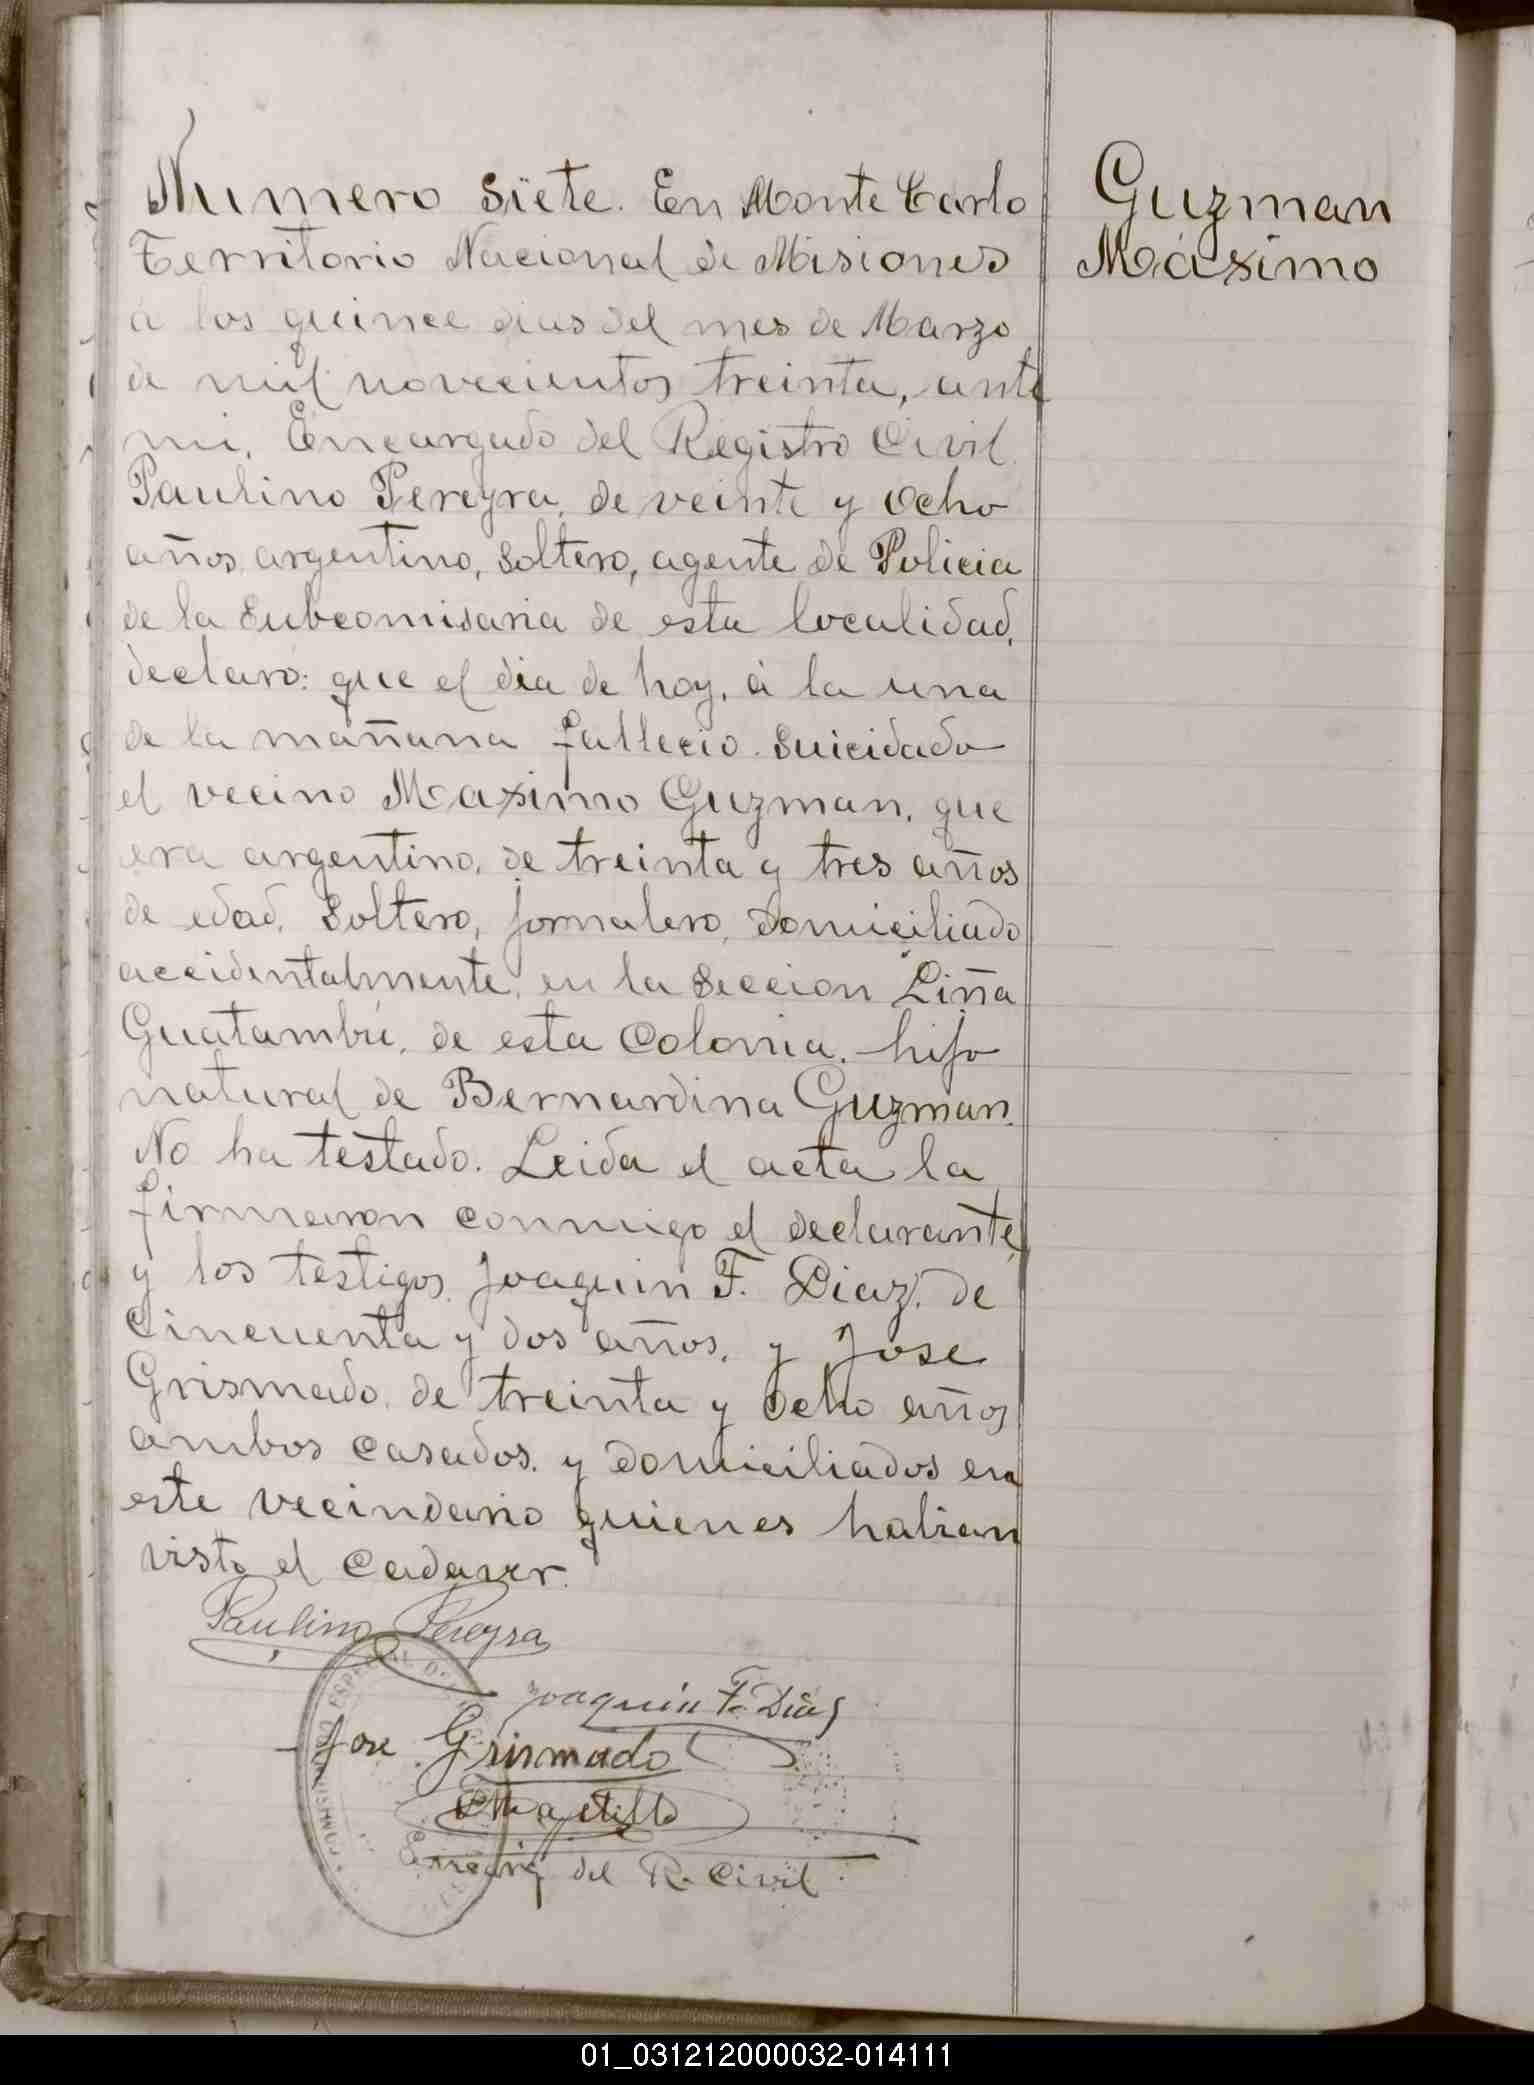 Numero siete. En Monte Carlo
Territorio Nacional de Misiones
a los quince dias del mes de Marzo
de mil novecientos treinta, ante
mi, Encargado del Registro Civil
Paulino Pereyra, de veinte y ocho
años, argentino, soltero, agente de Policia
de la Subcomisaria de esta localidad,
declaró: que el dia de hoy, à la una
de la mañana fallecio suicidado
el vecino Maximo Guzman, que
era argentino, de treinta y tres años
de edad, soltero, jornalero, domiciliado
accidentalmente, en la seccion Liña
Guatambú, de esta Colonia, hijo
natural de Bernardina Guzman.
No ha testado. Leida el acta la
firmaron conmigo el declarante,
y los testigos, Joaquin F. Diaz, de
cincuenta y dos años, y Jose
Grismado, de treinta y ocho años
ambos casados, y domiciliados en
este vecindario quienes habian
visto el cadaver.
Guzman
Máximo
Paulino Pereyra
Joaquin F. Dias
Jose Grismado
Encarg del R. Civil
01_031212000032-014111